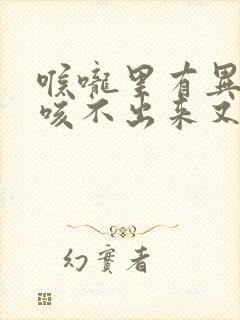 喉嚨里有異
咳不出来又
幻實者